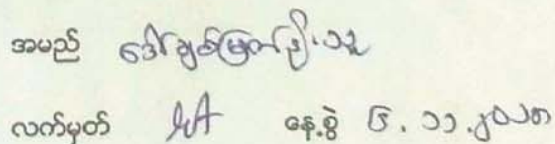 အမည် ဒေါ်ချစ်မြတ်နိုးသူ
လက်မှတ် နေ့စွဲ ၆.၁၁.၂၀၁၈